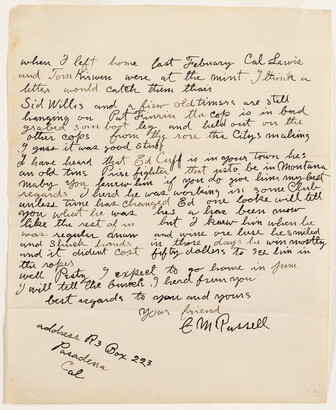 when I left home last Febuary Cal Lewis
and Tom Kirwen were at the mint I think a
letter would catch them thair
Sid Willis and a fiew oldtimers are still
hanging on Pat the cop is in bad
grabed som boot leg and held out on the
other cops from the rose the Citys making
I guss it was good stuff
I have heard that Ed Cuff is in your town hes
an old time Prise fighter that usto be in Montana
maby you know him if you do give him my best
regards I hird he was working in some Club
unless time has changed Ed one looke will tell
you what he was hes a has been now
like the rest of us but I knew him when he
was regular man and wine ore luse he smiled
and Shuck hands in those days he win mostly
and it dident cost fifty dollars to see him in
the ropes
well Pesty I expect to go home in June
I will tell the bunch I herd from you
best regards to you and yours
Your friend
C M Russell
address R3 Box 223
Pasadena
Cal